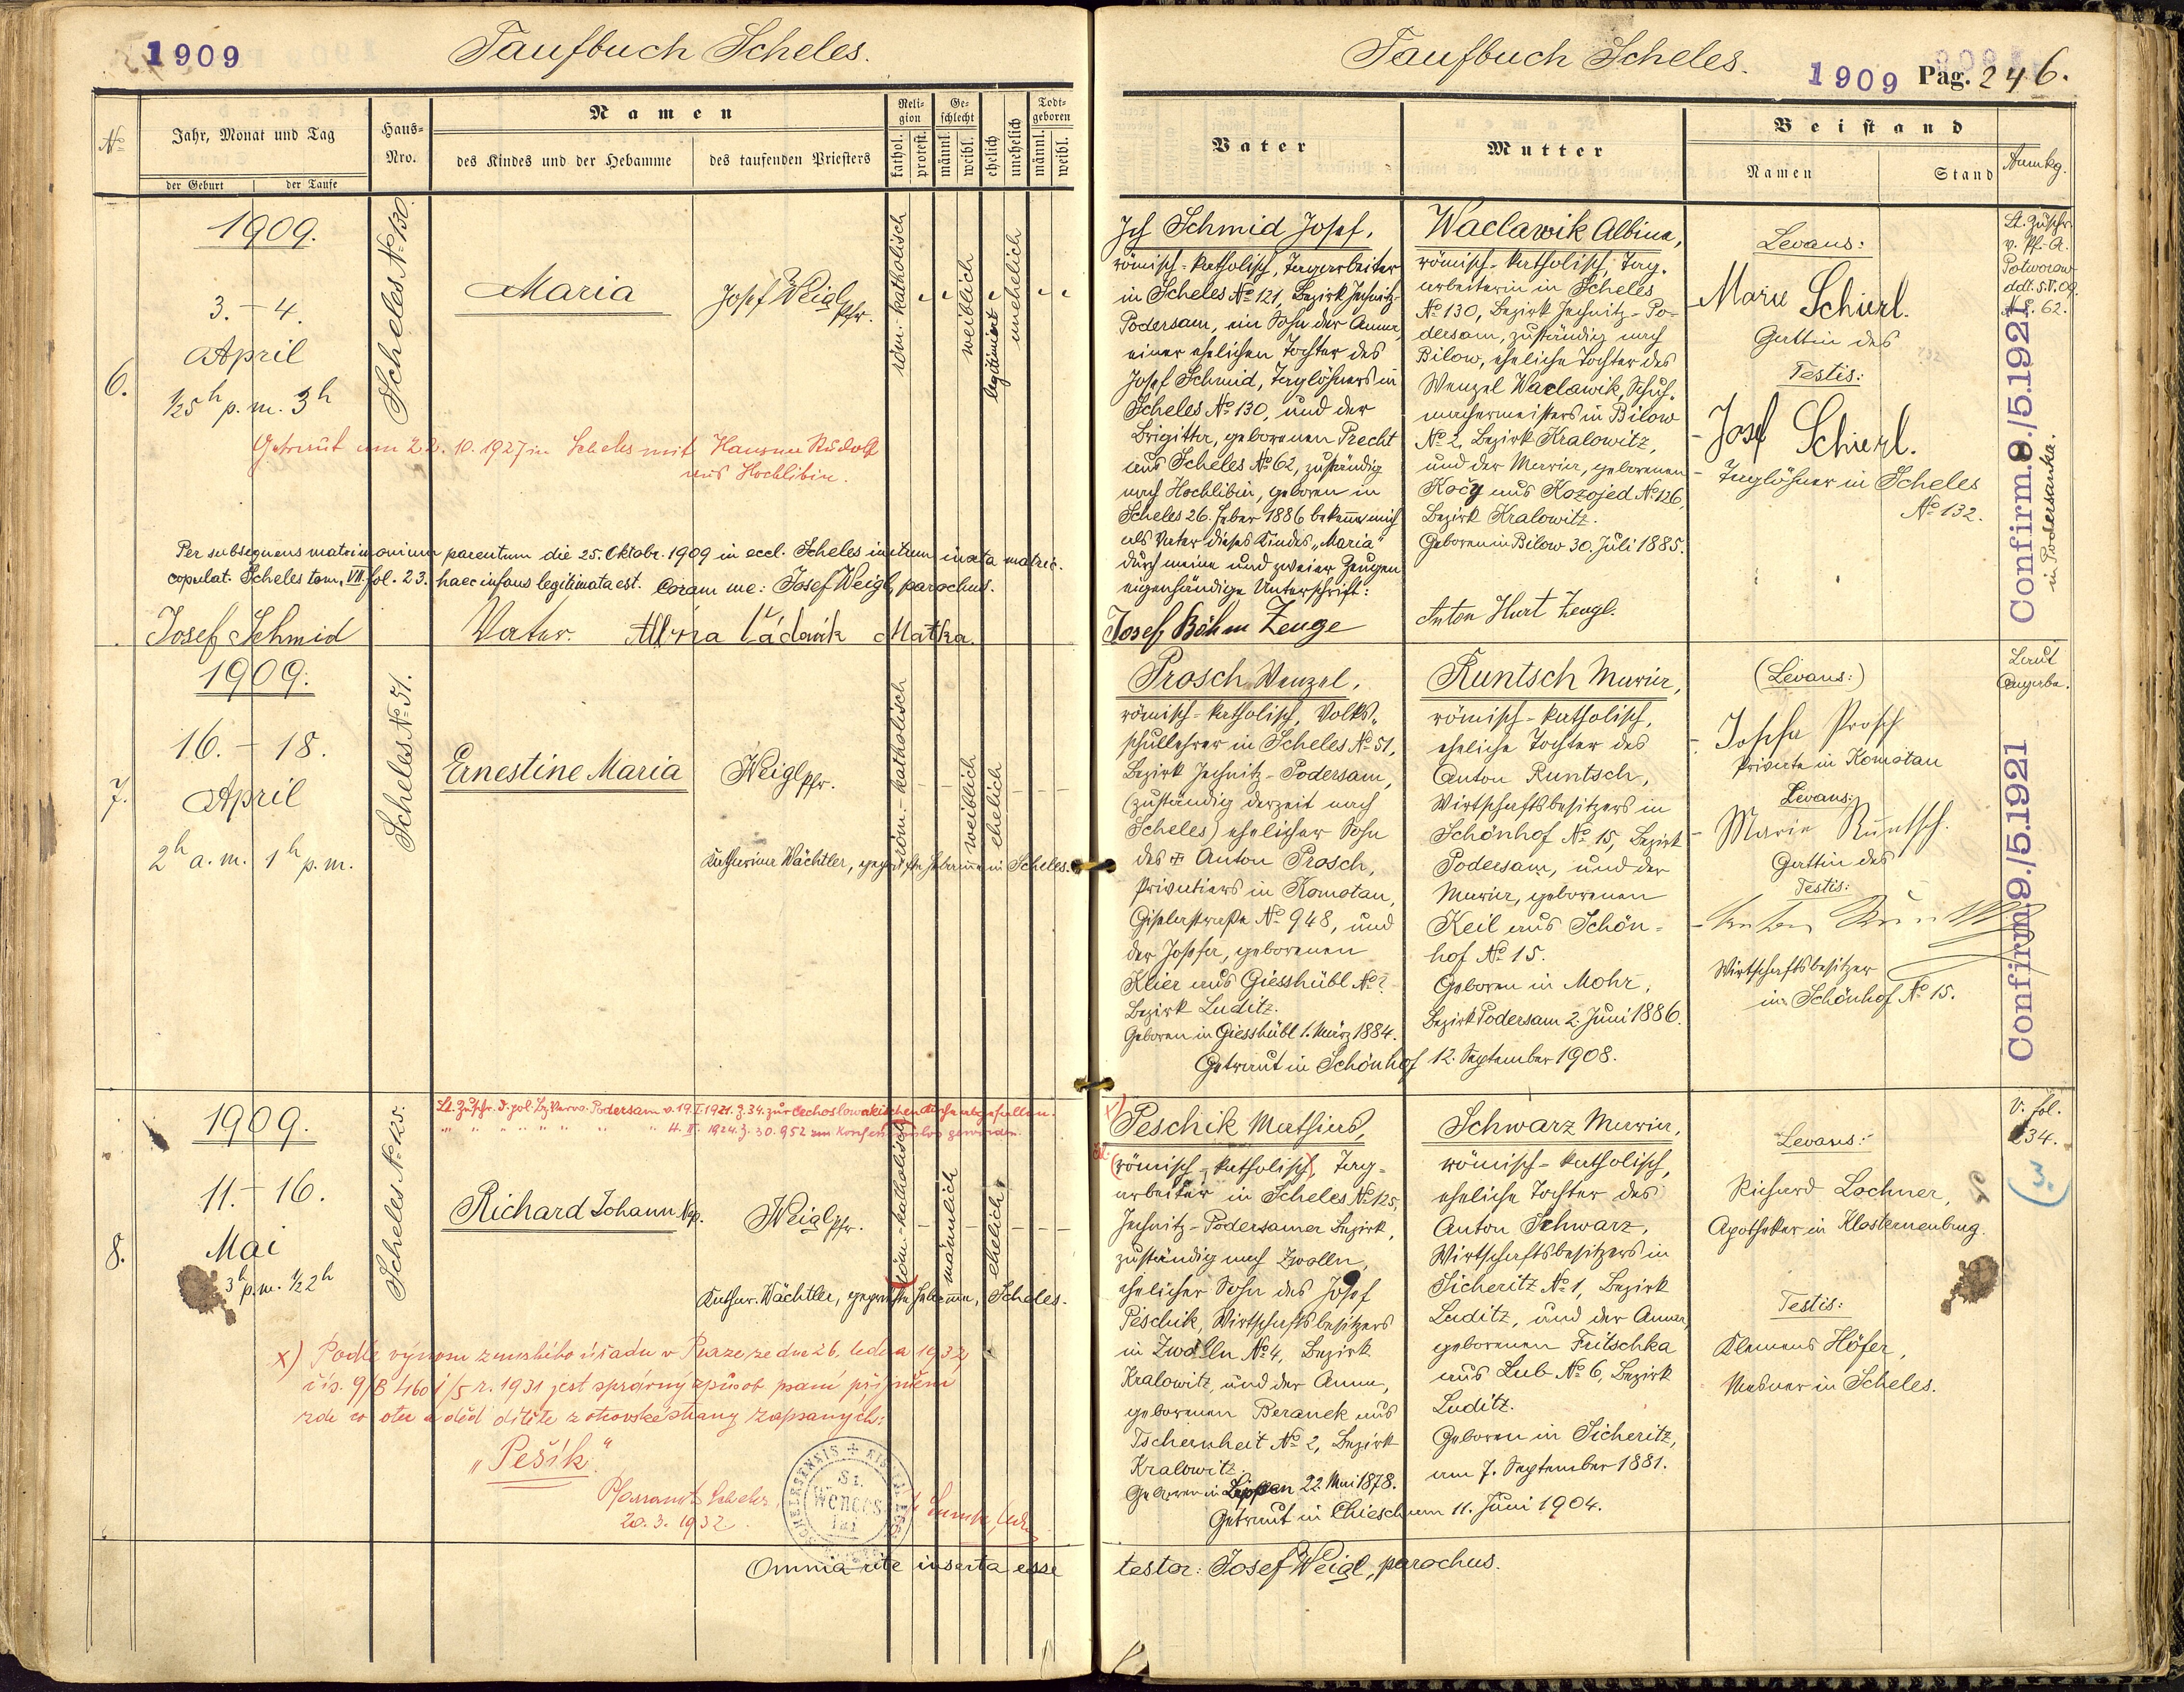 1909
Taufbuch Scheles.
№
Jahr, Monat und Tag
der Geburt
der Taufe
Haus-
Nro.
Namen
des Kindes und der Hebamme
des taufenden Priesters
Reli-
gion
kathol.
protest.
Ge-
schlecht
männl.
weibl.
ehelich
unehelich
Todt-
geboren
männl.
weibl.
6.
1909.
3. – 4.
April
½5h p.m. 3h
Scheles № 130.
Maria
Josef Weigl
Pfr.
röm.-katholisch
weiblich
legitimiert
unehelich
Getraut am 22. 10. 1927 in Scheles mit Hausner Rudolf
aus Hochlibin.
Per subsequens matrimonium parentum die 25. Oktobr. 1909 in eccl. Scheles initum iuxta matric.
copulat. Scheles tom. VII. fol. 23. haec infans legitimata est. Coram me: Josef Weigl, parochus.
Josef Schmid Vater. Matka.
7.
1909.
16. – 18.
April
2h a.m. 1h p.m.
Scheles № 51.
Ernestine Maria
Weigl Pfr.
röm.-katholisch
weiblich
ehelich
Katharina Wächtler, geprüfte Hebamme in Scheles.
8.
1909.
11. – 16.
Mai
3h p.m. ½2h
Scheles № 125.
Lt. Zuschr. d. pol. Bz. Verw. Podersam v. 19.I.1921. Z. 34. zur čechoslowakischen Kirche abgefallen.
" " " " " " " 4. II. 1924. Z. 30.952 konfessionslos geworden.
Richard Johann Nep.
Weigl Pfr.
röm.-katholisch
männlich
ehelich
Kathar. Wächtler, geprüfte Hebamme, Scheles.
x) Podle výnosu zemského úřadu v Praze ze dne 26. ledna 1932
čís. 9/B 4160 1/5 r. 1931 jest správný způsob psaní příjmení
zde co otec a děd dítěte z otcovské strany zapsaných:
„Pešík“.
Pfarramt Scheles
20. 3. 1932
St.
Wences
lai
Omnia rite inserta esse
Taufbuch Scheles.
1909 Pag. 246.
Vater
Mutter
Beistand
Namen
Stand
Anmkg.
Ich Schmid Josef,
römisch-katholisch, Tagarbeiter
in Scheles № 121, Bezirk Jechnitz-
Podersam, ein Sohn der Anna,
einer ehelichen Tochter des
Josef Schmid, Taglöhners in
Scheles № 130, und der
Brigitta, geborenen Precht
aus Scheles № 62, zuständig
nach Hochlibin, geboren in
Scheles 26. Feber 1886 bekenne mich
als Vater dieses Kindes „Maria“
durch meine und zweier Zeugen
eigenhändige Unterschrift:
Josef Böhm Zeuge
Waclawik Albina,
römisch-katholisch, Tag-
arbeiterin in Scheles
№ 130, Bezirk Jechnitz-Po-
dersam, zuständig nach
Bilow, eheliche Tochter des
Wenzel Waclawik, Schuh-
machermeisters in Bilow
№ 2, Bezirk Kralowitz,
und der Maria, geborenen
Kočy aus Kozojed № 126,
Bezirk Kralowitz.
Geboren in Bilow 30. Juli 1885.
Anton Hart Zeuge.
Levans:
Marie Schierl.
Gattin des
Testis:
Josef Schierl.
Taglöhner in Scheles
№ 132.
Lt. Zuschr.
v. Pf. A.
Potworow
ddt. 5.V.09
62.
Confirm. 8./5.1921
in Podersanka.
Prosch Wenzel,
römisch-katholisch, Volks-
schullehrer in Scheles № 51,
Bezirk Jechnitz-Podersam,
(zuständig derzeit nach
Scheles) ehelicher Sohn
des ✠ Anton Prosch,
Privatiers in Komotau,
Giselastraße № 948, und
der Josefa, geborenen
Klier aus Giesshübl № ?
Bezirk Luditz.
Geboren in Giesshübl 1. März 1884.
Getraut in Schönhof 12. September 1908.
Runtsch Maria,
römisch-katholisch,
eheliche Tochter des
Anton Runtsch,
Wirtschaftsbesitzers in
Schönhof № 15, Bezirk
Podersam, und der
Maria, geborenen
Keil aus Schön-
hof № 15.
Geboren in Mohr,
Bezirk Podersam 2. Juni 1886.
(Levans:)
Josefa Prosch
Private in Komotau
Levans:
Marie Runtsch.
Gattin des
Testis:
Wirtschaftsbesitzer
in Schönhof № 15.
Laut
Angabe.
Confirm. 9./5.1921
x)
Peschik Mathias,
(römisch-katholisch), Tag-
arbeiter in Scheles № 125,
Jechnitz-Podersamer Bezirk,
zuständig nach Zwolln,
ehelicher Sohn des Josef
Peschik, Wirtschaftsbesitzers
in Zwolln № 4, Bezirk
Kralowitz, und der Anna,
geborenen Beranek aus
Tschernheit № 2, Bezirk
Kralowitz.
Geboren in Lippen 22. Mai 1878.
Getraut in Chiesch am 11. Juni 1904.
Schwarz Maria,
römisch-katholisch,
eheliche Tochter des
Anton Schwarz,
Wirtschaftsbesitzers in
Sicheritz № 1, Bezirk
Luditz, und der Anna,
geborenen Fritschka
aus Lub № 6, Bezirk
Luditz.
Geboren in Sicheritz,
am 7. September 1881.
Levans:
Richard Lochner,
Apotheker in Klosterneuburg.
Testis:
Klemens Höfer,
Mesner in Scheles.
V. fol.
234.
3.
testor: Josef Weigl, parochus.